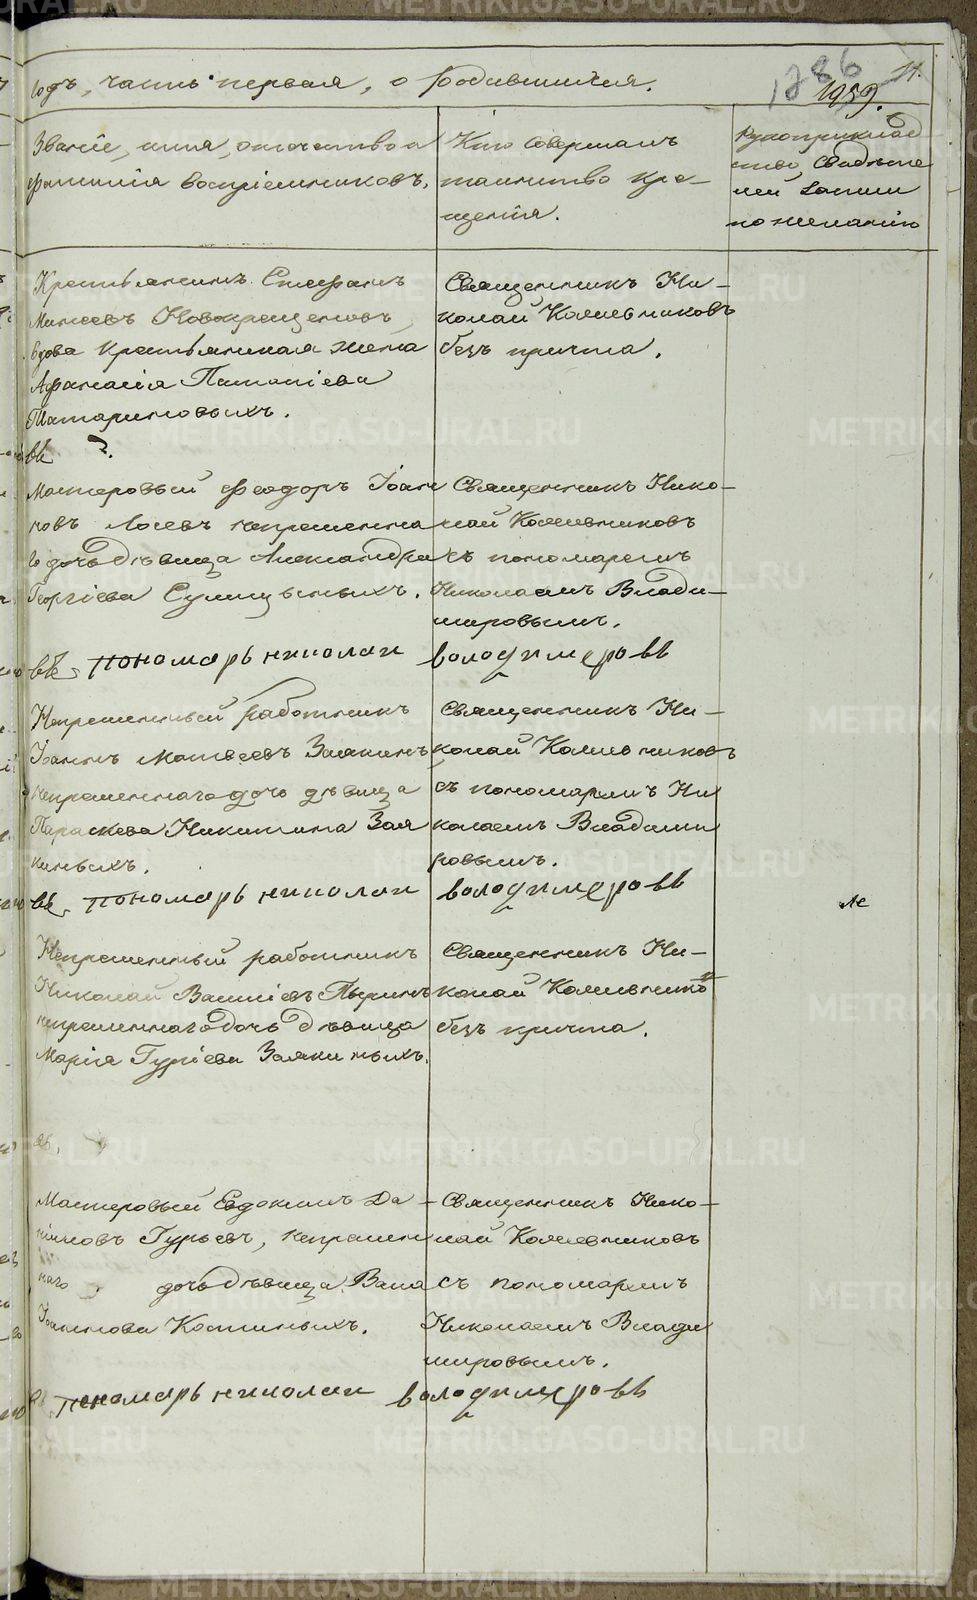 годъ, часть первая, о родившихся.
1286
1959.
Званіе, имя, отчество и
фамилія воспріемниковъ.
Кто совершалъ
таинство кре-
щенія.
Рукоприклад
ство свидѣте
лей записи
по желанію
Крестьянинъ Стефанъ
Минеевъ Новокрещеновъ,
вдова крестьянская жена
Афанасія Потапіева
Татариновыхъ.
Священникъ Ни-
колай Калиевниковъ
безъ причта.
Мастеровый Феодоръ Іоан
новъ Лосевъ непременна
го дочь дѣвица Александра
Георгіева Сулицыныхъ.
Священникъ Нико-
лай Калиевниковъ
съ пономаремъ
Николаемъ Влади-
мировымъ.
пономарь николаи володимеровъ
Непременный работникъ
Іоаннъ Матвеевъ Заякинъ
непременнаго дочь дѣвица
Параскева Никитина Зая
киныхъ.
Священникъ Ни-
колай Калиевниковъ
съ пономаремъ Ни
колаемъ Владими
ровымъ.
пономарь николаи володимеровъ
Непременный работникъ
Николай Василіевъ Пыринъ
непременнаго дочь дѣвица
Марія Гуріева Заякиныхъ.
Священникъ Ни-
колай Калиевнико
безъ причта.
Мастеровый Евдокимъ Да-
ниловъ Гурьевъ, непремен
наго дочь дѣвица Васа
Іоаннова Костиныхъ.
Священникъ Нико-
лай Калиевниковъ
съ пономаремъ
Николаемъ Влади
мировымъ.
пономарь николаи володимеровъ
METRIKI.GASO-URAL.RU